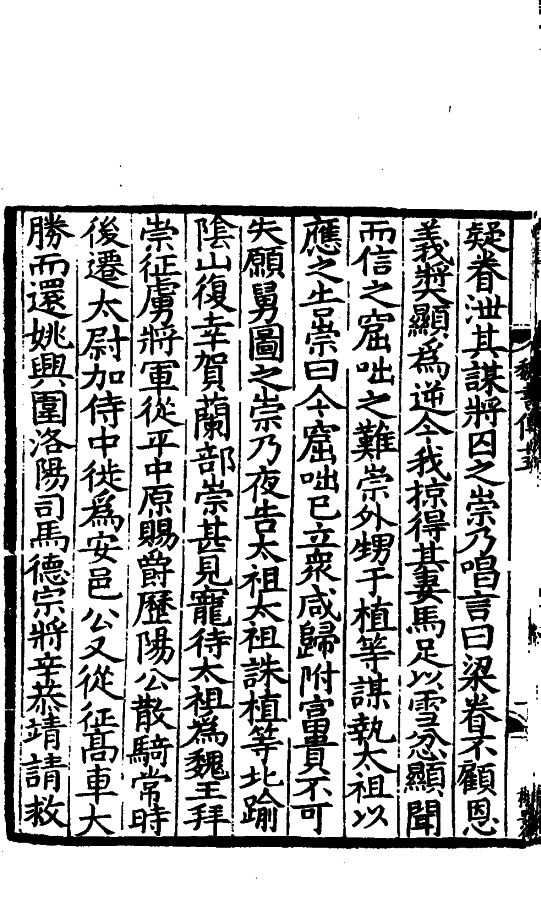 疑眷泄其謀將囚之崇乃唱言曰梁眷不顧恩
義奬顯爲逆今我掠得其妻馬足以雪忿顯聞
而信之窟咄之難崇外甥于植等謀執太祖以
應之告崇曰今窟咄已立衆咸歸附富貴不可
失願舅圖之崇乃夜告太祖太祖誅植等北踰
陰山復幸賀蘭部崇甚見寵待太祖爲魏王拜
崇征虜將軍從平中原賜爵歷陽公散騎常時
後遷太尉加侍中徙爲安邑公又從征髙車大
勝而還姚興圍洛陽司馬德宗將辛恭靖請救